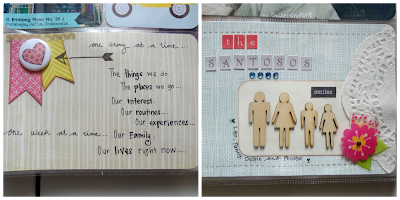 Jl Embong Ploso No. 19 /
Surabaya, Jatim, Indonesia
one story at a time...
The things we do.
The places we go...
Our interest.
Our routines...
Our experiences...
one week at a time...
Our Family.
Our lives right now....
the
SANTOSOS
smiles
and